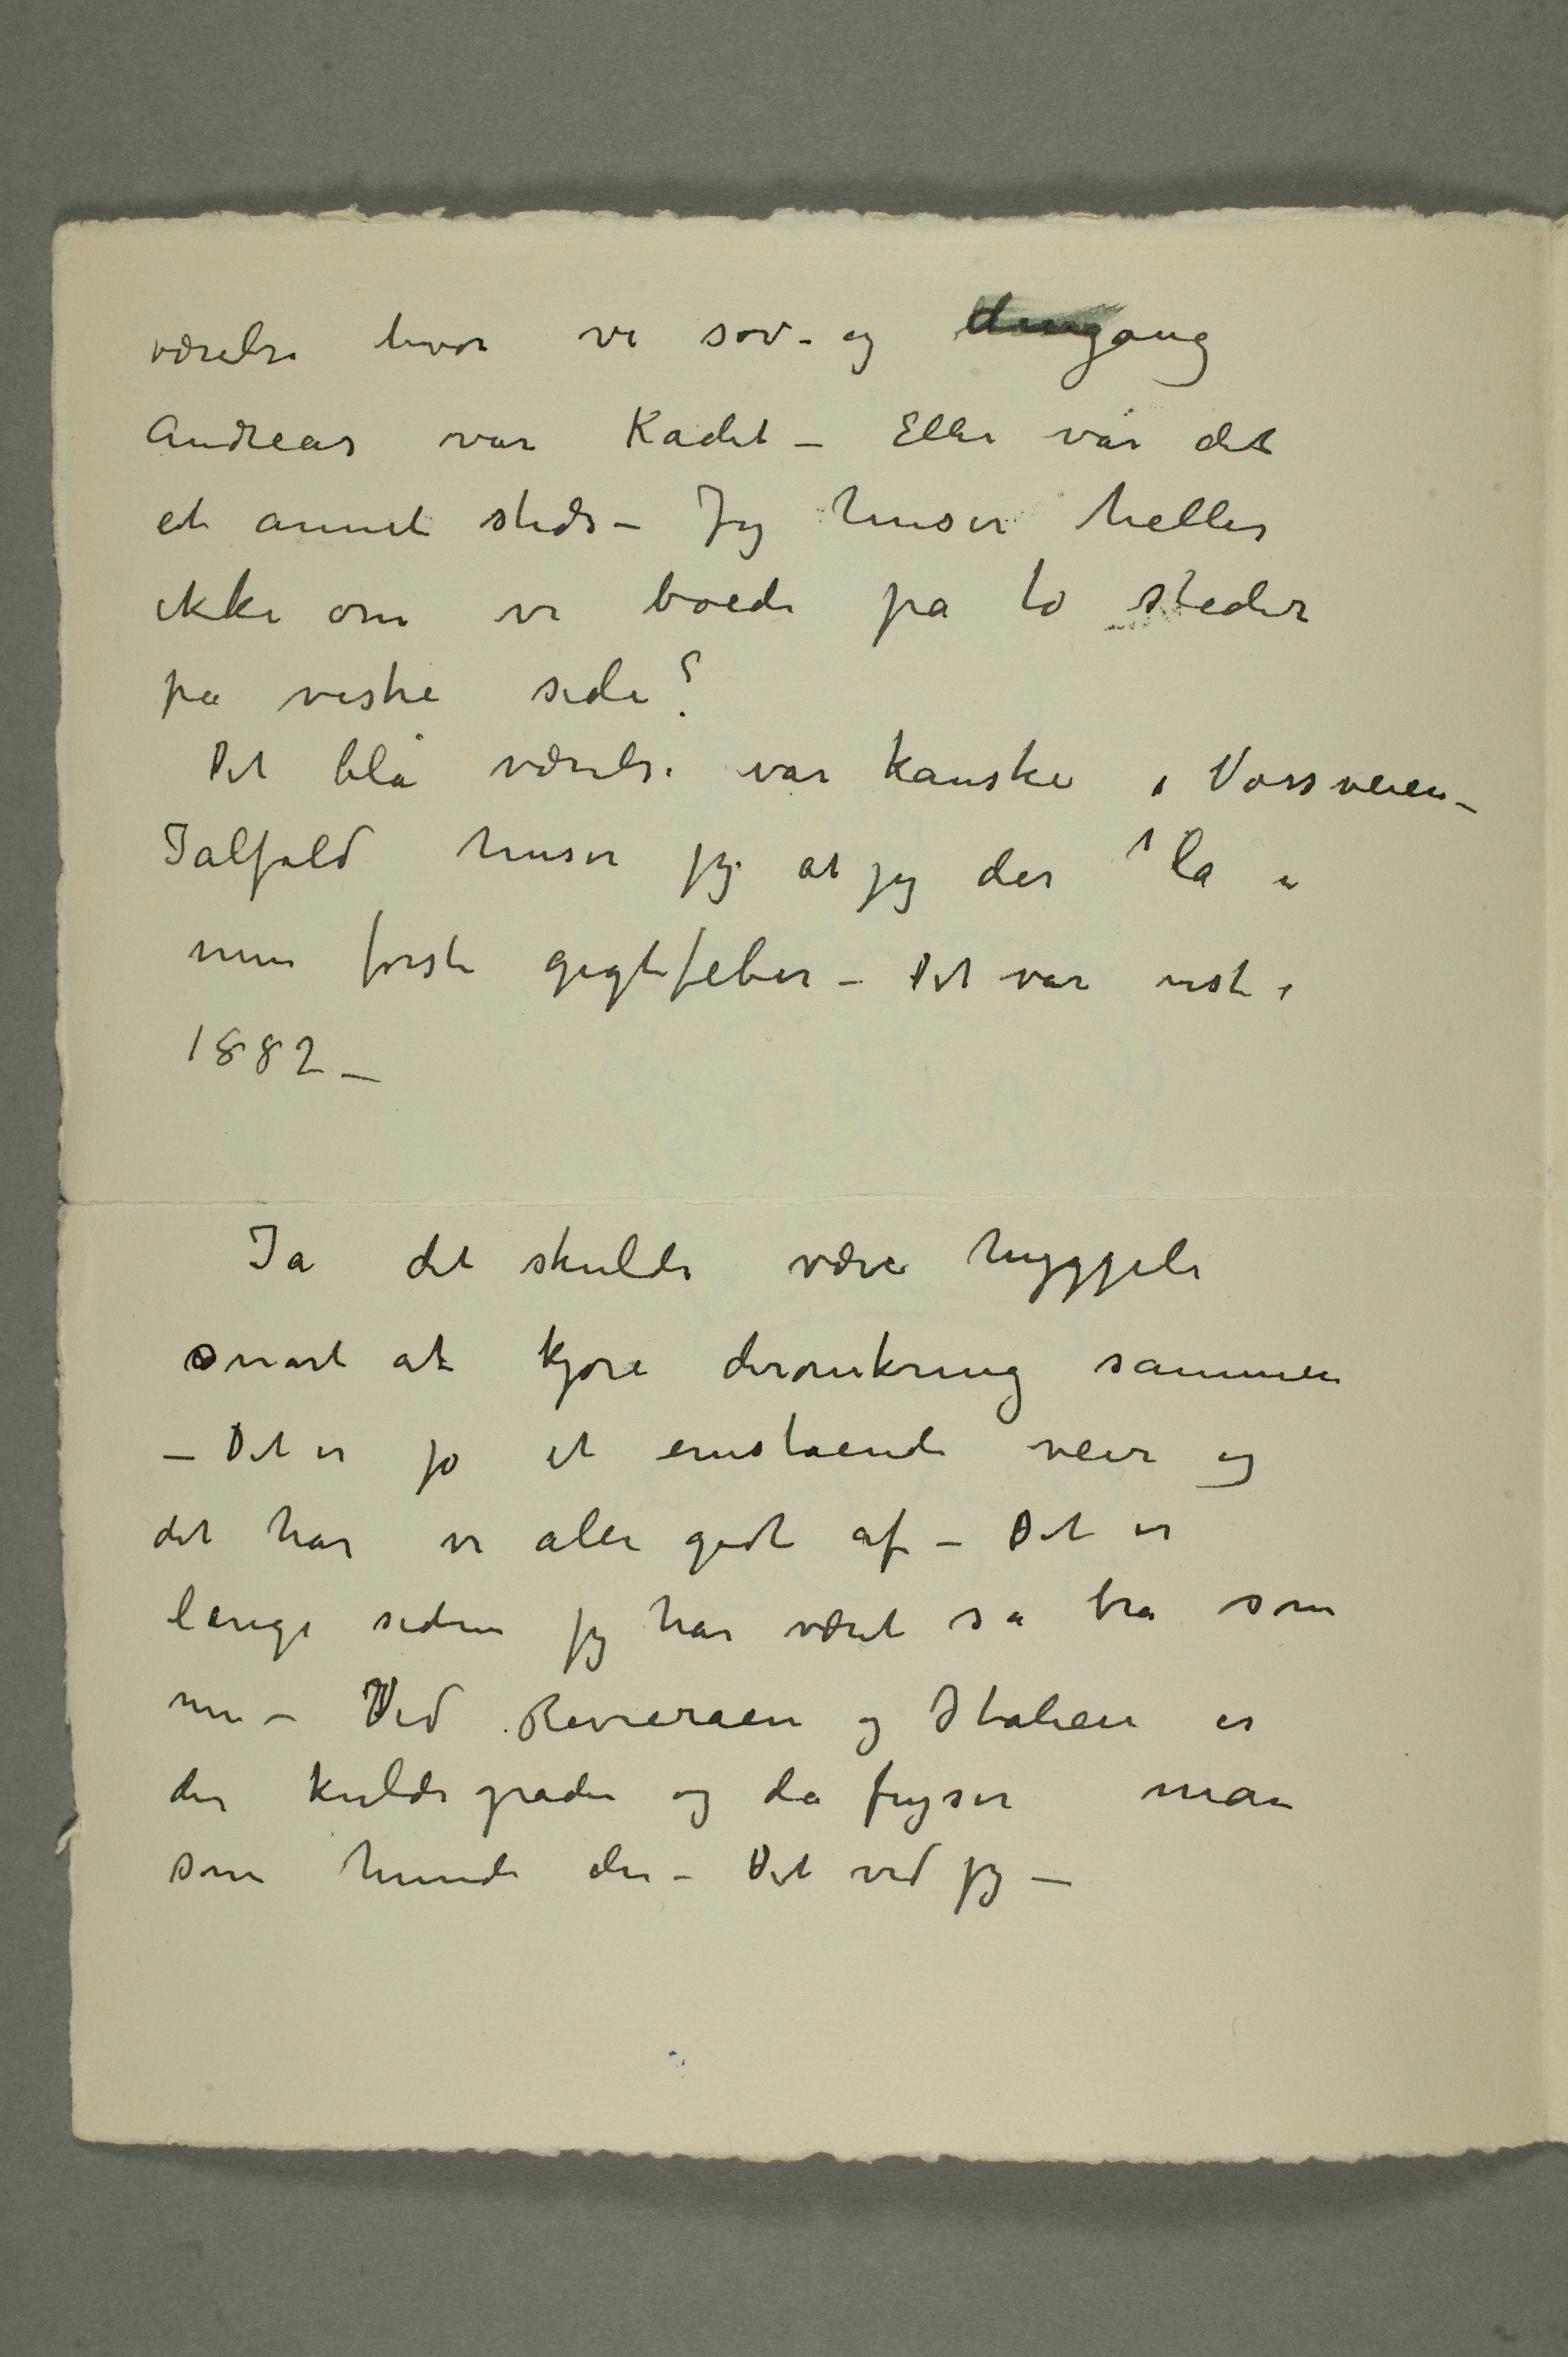 værelse hvor vi sov – og dengang
Andreas var Kadet – Eller var det
et annet steds – Jeg husker heller
ikke om vi boede på to steder
på vestre side?
Det blå værelse var kanske i Vossveien –
Ialfald husker jeg at jeg der lå i
min første gigtfeber – Det var vist i
1882 –
Ja det skulde være hyggeli
snart at kjøre deromkring sammen
– Det er jo et enestående veir og
det har vi alle godt af – Det er
lenge siden jeg har været så bra som
nu – Ved Rivieraen og Italien er
der kuldegrader og da fryser man
som hunde der – Det ved jeg –